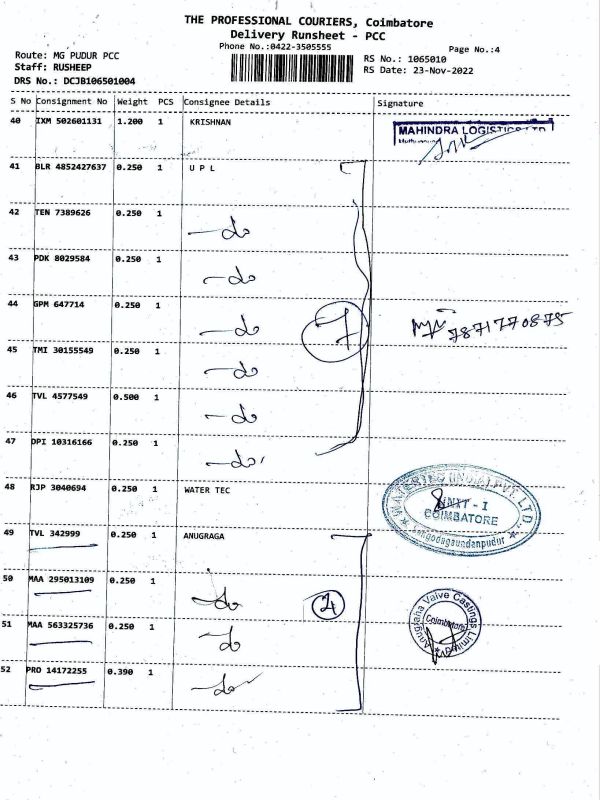 THE PROFESSIONAL COURIERS, Coimbatore
Delivery Runsheet - PCC
Phone No.:0422-3505555
Page No.:4
Route: MG PUDUR PCC
Staff: RUSHEEP
DRS No.: DCJB106501004
RS No.: 1065010
RS Date: 23-Nov-2022
S No Consignment No Weight PCS Consignee Details Signature
40 IXM 502601131 1.200 1 KRISHNAN
MAHINDRA LOGISTICS LTD
41 BLR 4852427637 0.250 1 U P L
42 TEN 7389626 0.250 1 -do
43 PDK 8029584 0.250 1 -do
44 GPM 647714 0.250 1 -do 7 7871770875
45 TMI 30155549 0.250 1 -do
46 TVL 4577549 0.500 1 -do
47 DPI 10316166 0.250 1 -do
48 RJP 3040694 0.250 1 WATER TEC
WATERTEC (INDIA) PVT. LTD.
UNIT - I
COIMBATORE
49 TVL 342999 0.250 1 ANUGRAGA
50 MAA 295013109 0.250 1 -do 4
51 MAA 563325736 0.250 1 -do
Anugraha Valve Castings Limited
Coimbatore
52 PRO 14172255 0.390 1 -do